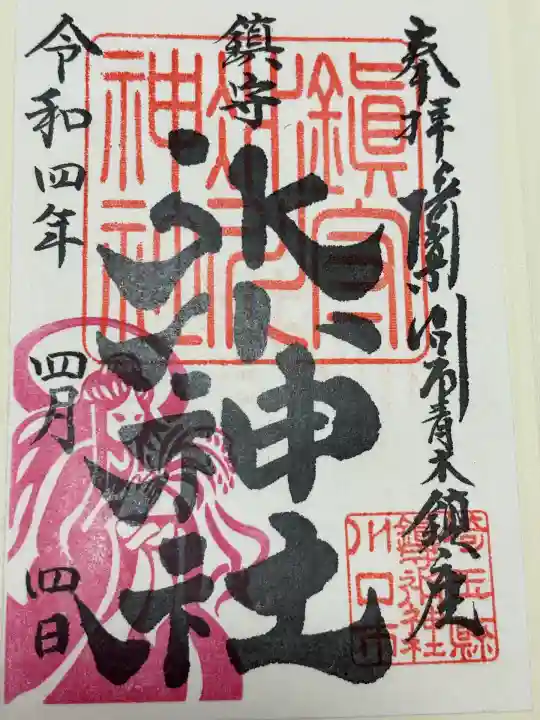 奉拝 川口市青木鎮座
鎮守
氷川神社
令和四年 四月 四日
鎮守
氷川
神社
埼玉縣
鎮守氷川神社
川口市